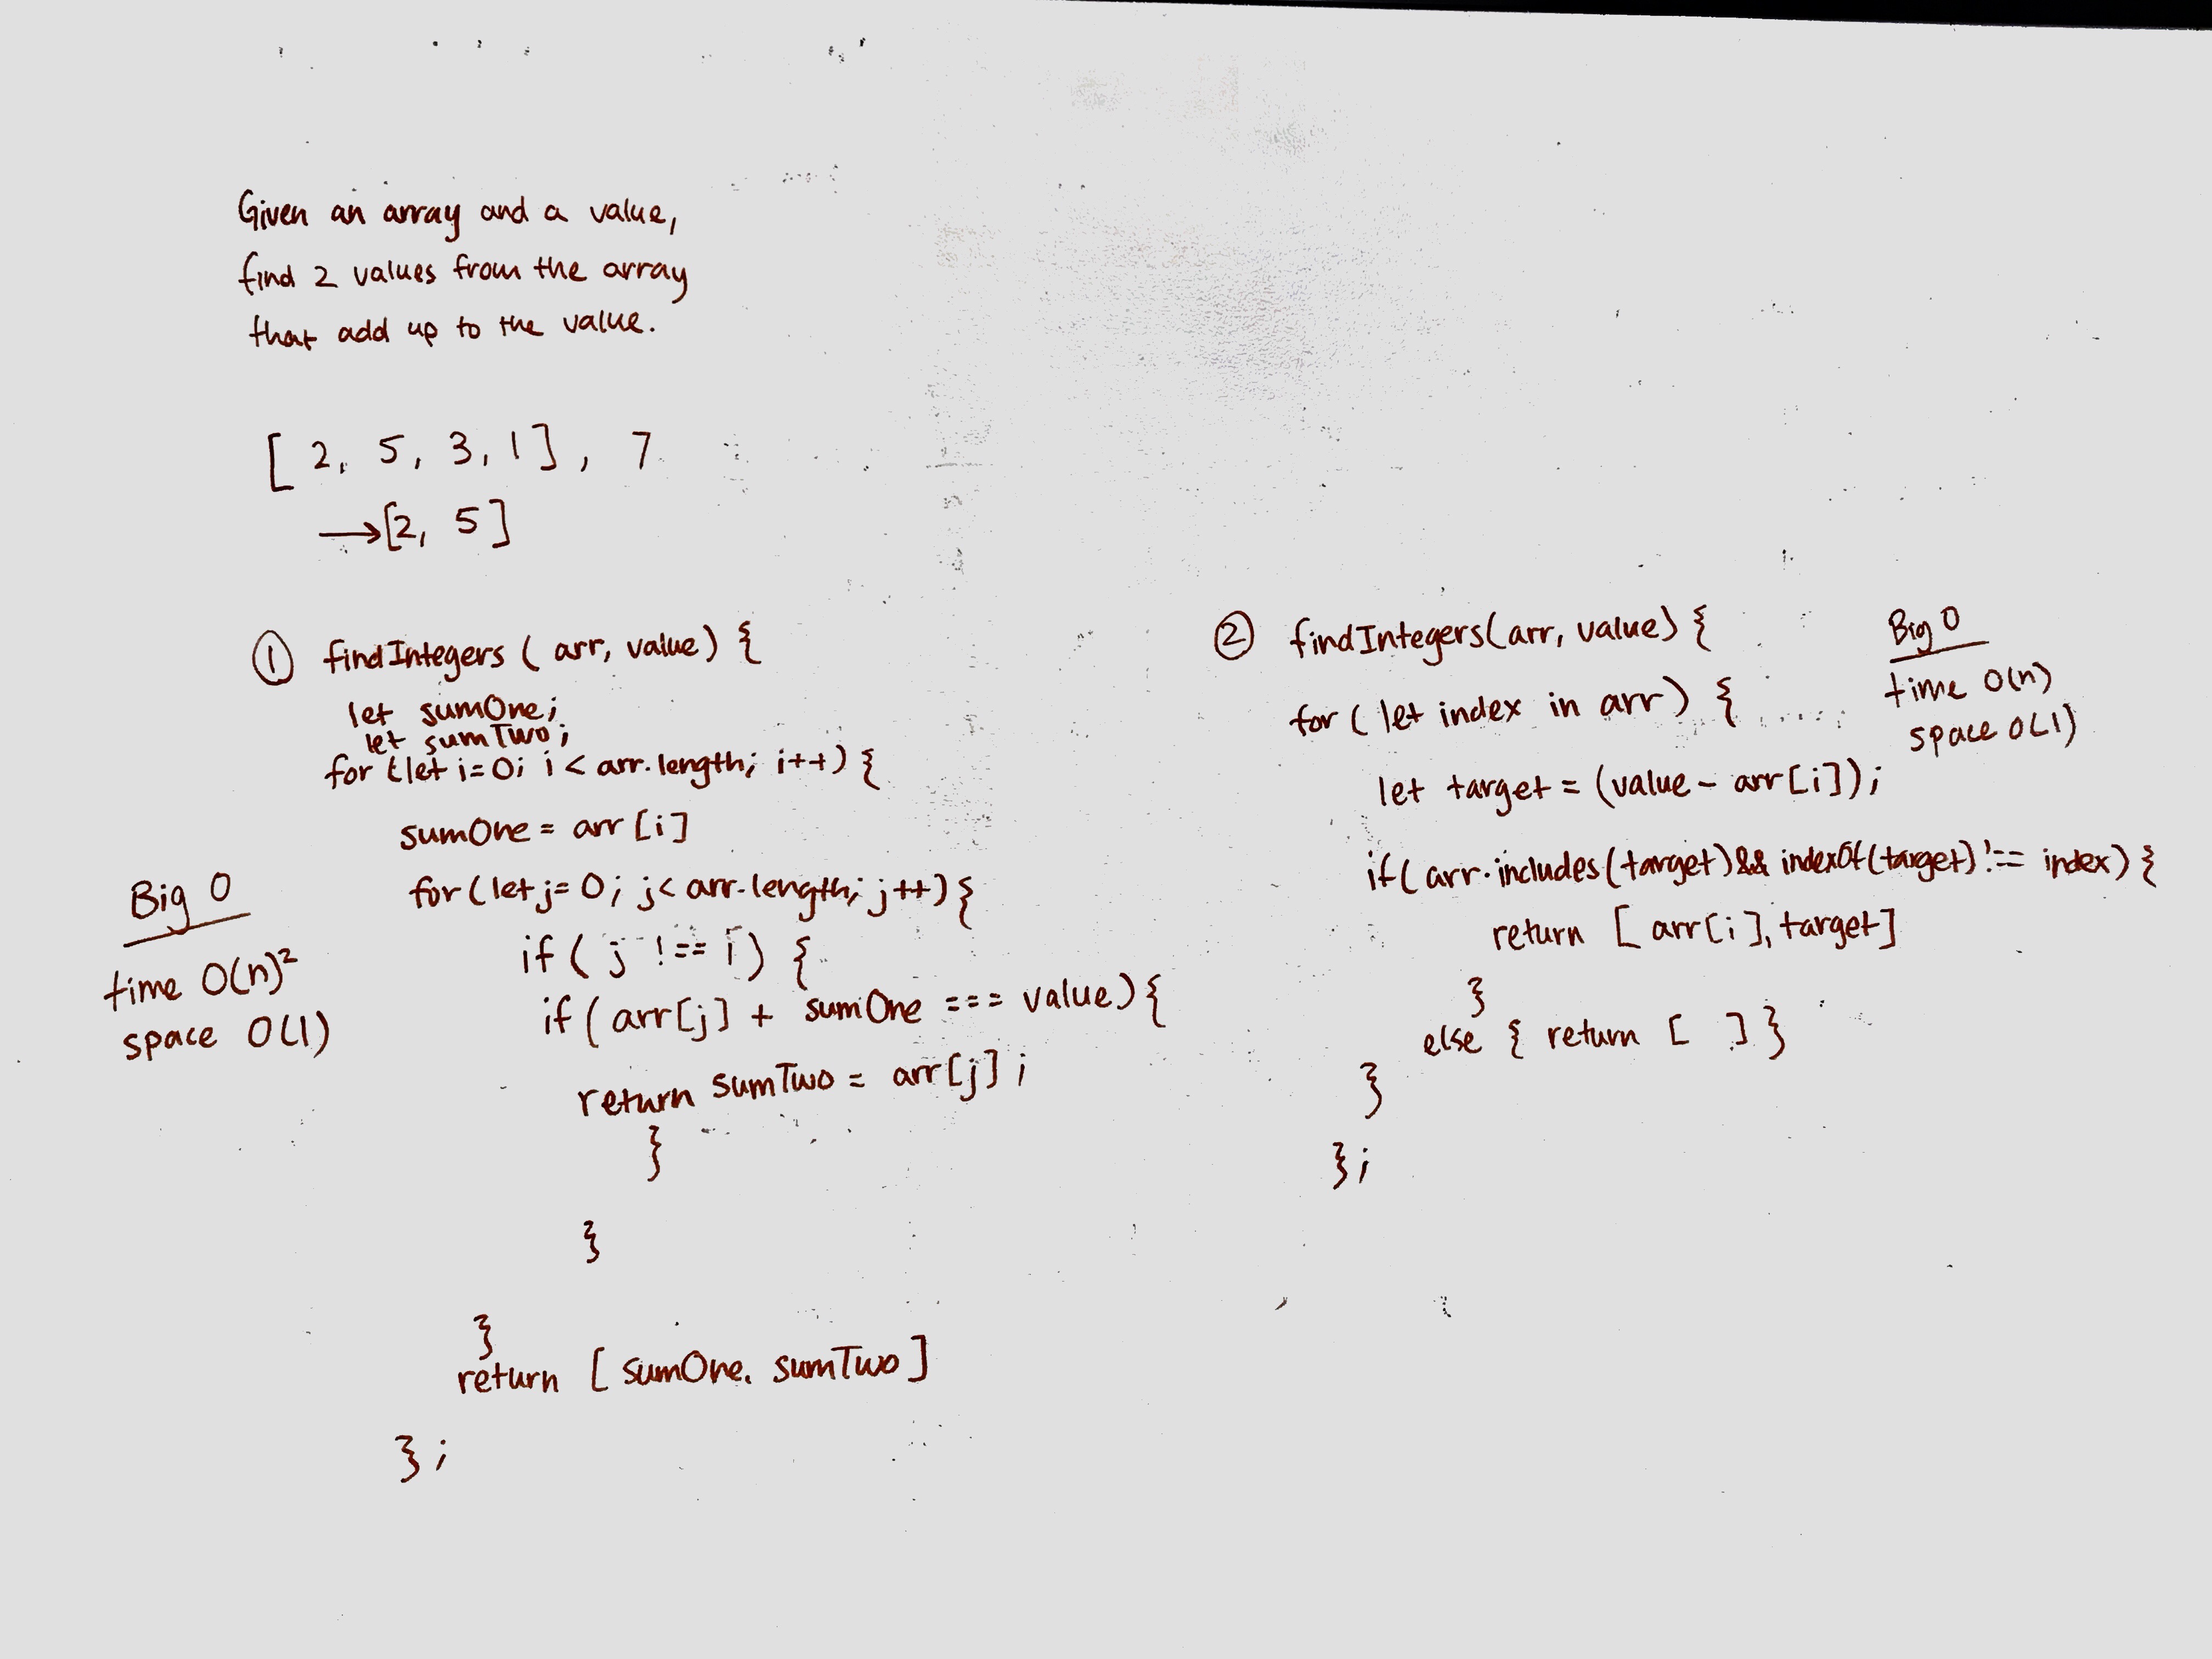 Given an array and a value,
find 2 values from the array
that add up to the value.
[ 2, 5, 3, 1 ] , 7
→[2, 5]
① findIntegers ( arr, value) {
let sumOne;
let sumTwo;
for (let i=0; i < arr.length; i++) {
sumOne = arr [i]
for (let j= 0; j< arr.length; j++) {
if ( j !== i) {
if ( arr[j] + sumOne === value) {
return sumTwo = arr[j] ;
}
}
}
return [ sumOne, sumTwo ]
} ;
Big O
time O(n)²
space O(1)
② findIntegers(arr, value) {
for ( let index in arr) {
let target = (value - arr [i]);
if( arr.includes(target) && indexOf(target) !== index) {
return [ arr[i], target]
}
else { return [ ] }
}
} ;
Big O
time O(n)
space O(1)